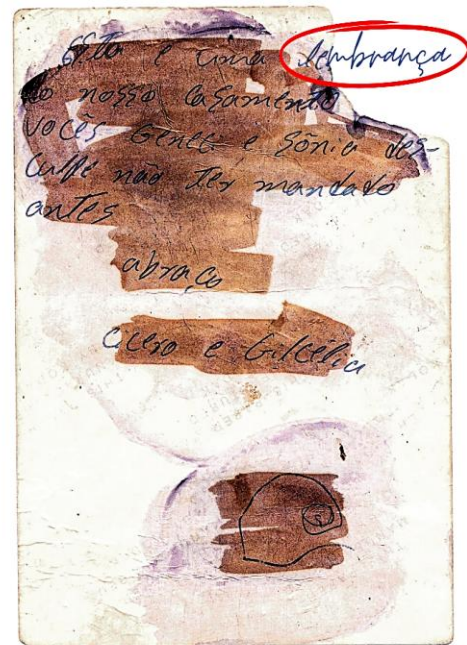 Esta é uma lembrança
do nosso casamento
vocês Genec e Sônia des-
culpe não ter mandado
antes
abraço
Cícero e Gilcélia